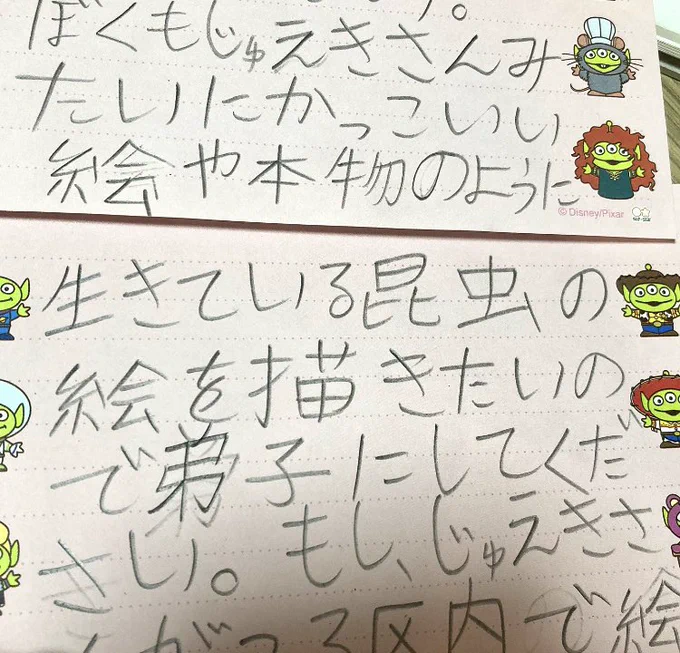 ぼくもじゅえきさんみ
たいにかっこいい
絵や本物のように
© Disney/Pixar
生きている昆虫の
絵を描きたいの
で弟子にしてくだ
さい。もし、じゅえきさ
区内で絵